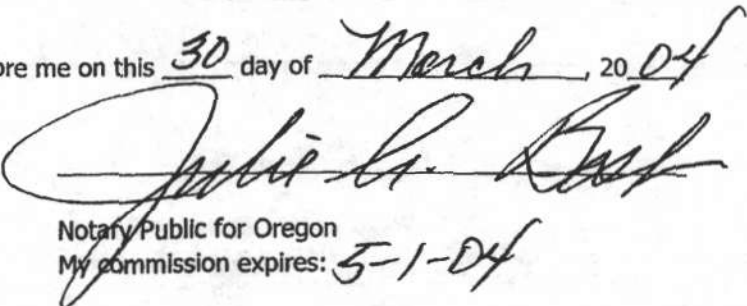 ore me on this 30 day of March, 2004
Julie A.
Notary Public for Oregon
My commission expires: 5-1-04